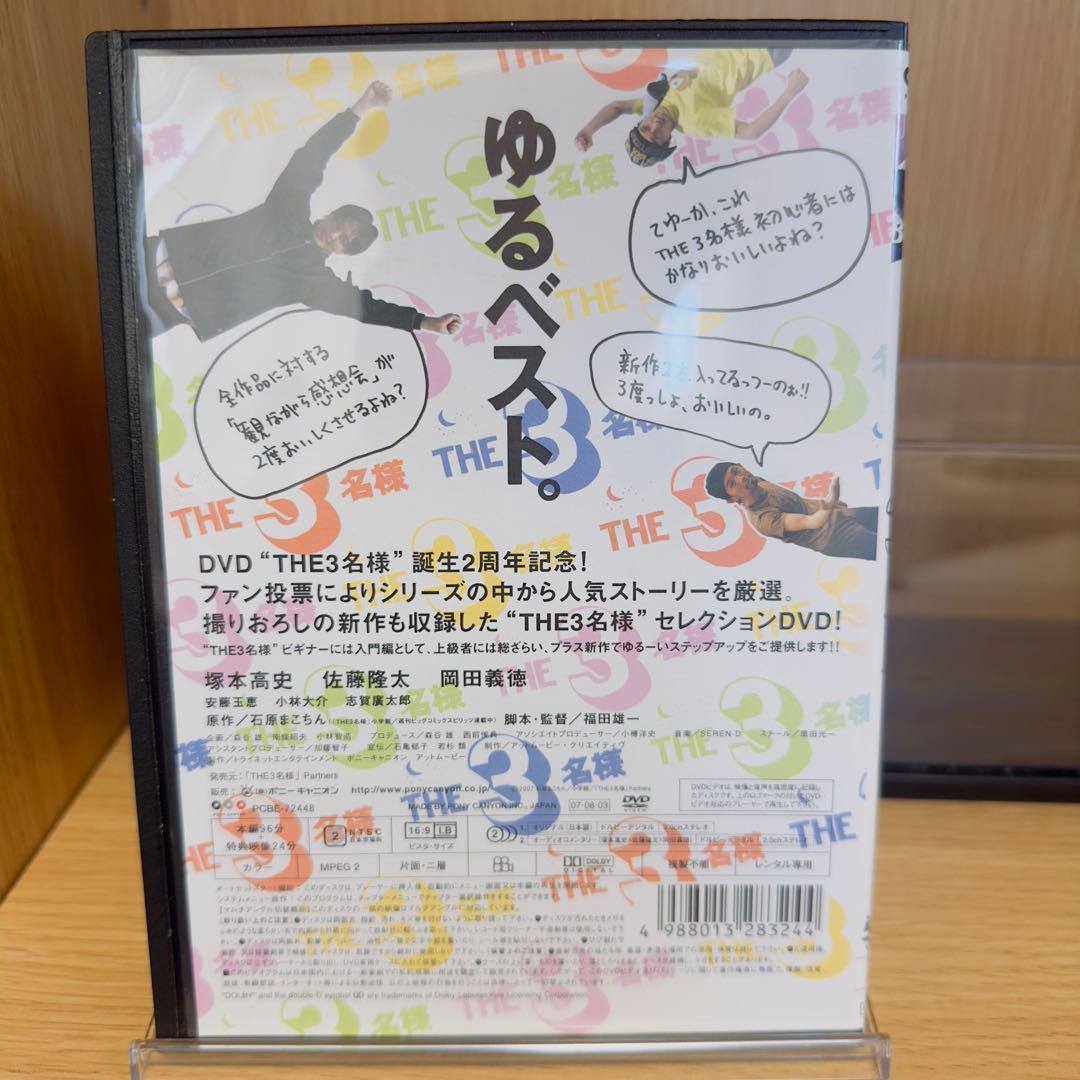 ゆるベスト。
てゆーか、これ
THE3名様初心者には
かなりおいしいよね?
全作品に対する
「観ながら感想会」が
2度おいしくさせるよね?
新作2本入ってるっつーのぉ!!
3度っしょ、おいしいの。
THE3名様
DVD “THE3名様” 誕生2周年記念!
ファン投票によりシリーズの中から人気ストーリーを厳選。
撮りおろしの新作も収録した “THE3名様” セレクションDVD!
“THE3名様” ビギナーには入門編として、上級者には総ざらい、プラス新作でゆるーいステップアップをご提供します!!
塚本高史 佐藤隆太 岡田義徳
安藤玉恵 小林大介 志賀廣太郎
原作/石原まこちん(「THE3名様」小学館/週刊ビッグコミックスピリッツ連載中) 脚本・監督/福田雄一
企画/森谷 雄 南條昭夫 小林智浩 プロデュース/森谷 雄 西前俊典 アソシエイトプロデューサー/小椿洋史 音楽/SEREN-D スチール/
アシスタントプロデューサー/加藤智子 宣伝/石亀郁子 若杉 類 制作/アットムービー・クリエイティヴ
製作/トライネットエンタテインメント ポニーキャニオン アットムービー
発売元:「THE3名様」Partners
販売:(株)ポニーキャニオン http://www.ponycanyon.co.jp/ ©2007 石原まこちん/小学館/「THE3名様」Partners
PCBE-72448 MADE BY PONY CANYON INC., JAPAN 07・08・03 DVD VIDEO
DVDビデオは、映像と音声を高密度に記録したディスクです。上のロゴマークの付いたDVDビデオ対応のプレーヤーで再生して下さい。
本編96分
+
特典映像24分
2 NTSC 日本市場向
16:9 LB ビスタ・サイズ
2 1:オリジナル(日本語) ドルビーデジタル 2.0chステレオ
2:オーディオコメンタリー
カラー MPEG 2 片面・二層 DOLBY DIGITAL 複製不能 レンタル専用
4 988013 283244
“DOLBY” and the double D symbol are trademarks of Dolby Laboratories Licensing Corporation.